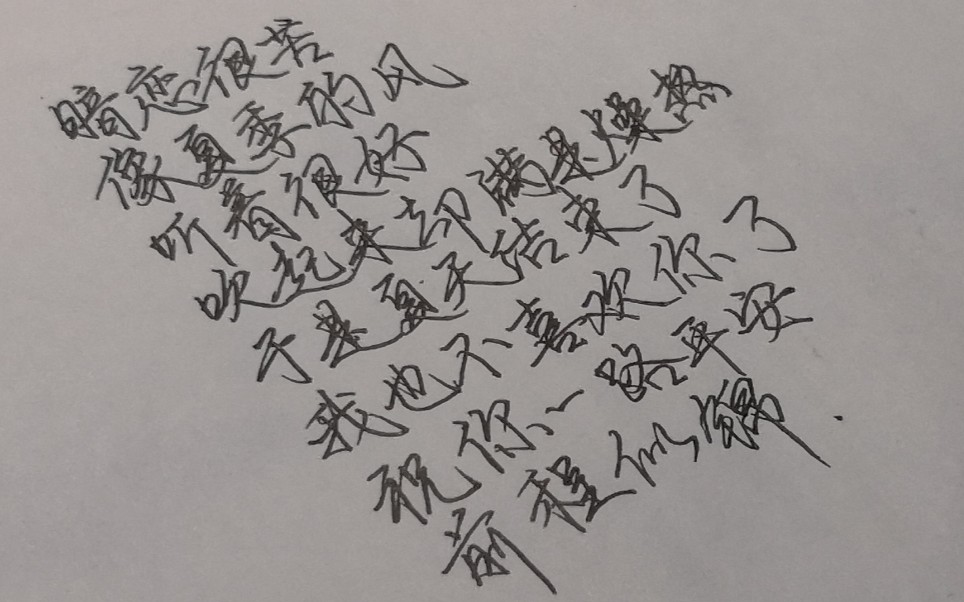 暗恋很苦
像夏季的风
听着很好
吹起来却满是燥热
于是夏天结束了
我也不喜欢你了
祝你一路平安
前程似锦